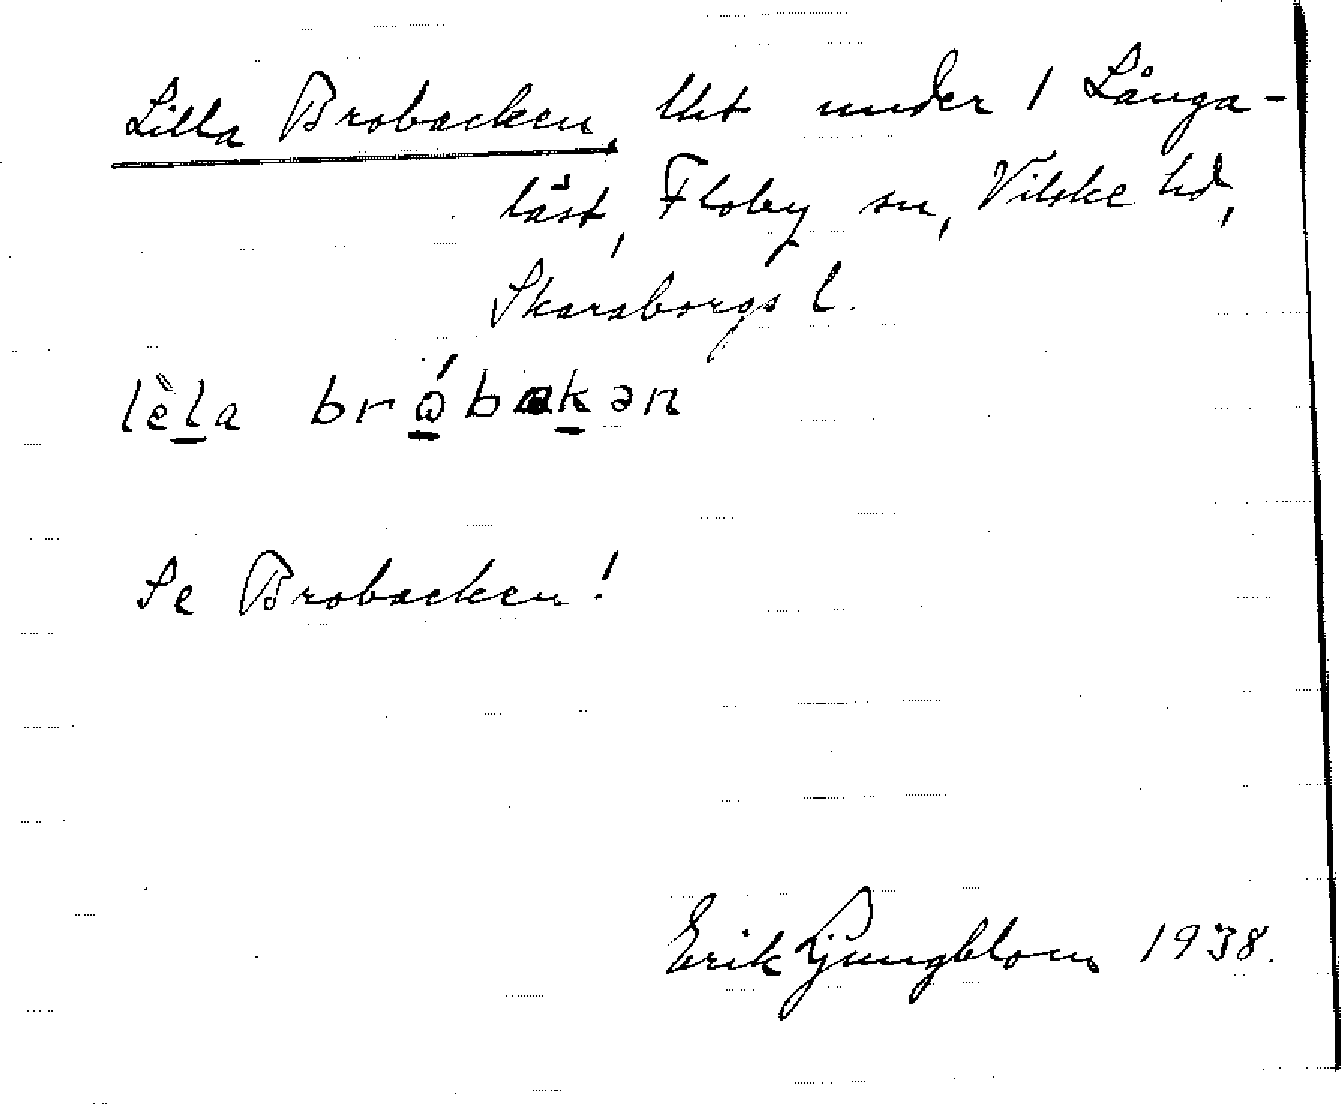 Lilla Brobacken, lht under 1 Långa-
läst, Floby sn, Vilske hd,
Skaraborgs l.
lèla bróbakən
Se Brobacken!
Erik Ljungblom 1938.